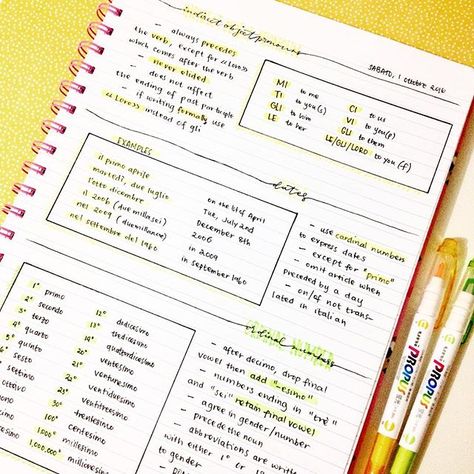 indirect object pronouns
SABATO, 1 OTTOBRE 2016
- always precedes
the verb, except for «Loro»
which comes after the verb
- never elided
- does not affect
the ending of past participle
- if writing formally use
«Loro» instead of gli
MI to me
TI to you(s)
GLI to him
LE to her
CI to us
VI to you(p)
GLI to them
LE/GLI/LORO to you (f)
dates
EXAMPLES
il primo aprile
martedì, due luglio
l'otto dicembre
il 2006 (duemilasei)
nel 2009 (duemilanove)
nel settembre del 1960
on the 1st of April
Tue, July 2nd
December 8th
2006
in 2009
in september 1960
- use cardinal numbers
to express dates
- except for "primo"
- omit article when
preceded by a day
- on/of not trans-
lated in italian
ordinal numbers
1° primo
2° secondo
3° terzo
4° quarto
5° quinto
sesto
settimo
ottavo
nono
decimo
12° dodicesimo
13° tredicesimo
14° quattordicesimo
20° ventesimo
21° ventunesimo
22° ventiduesimo
23° ventitreesimo
30° trentesimo
100° centesimo
1000° millesimo
1,000,000° millionesimo
- after decimo, drop final
vowel then add "esimo"
- numbers ending in "tre"
and "sei" retain final vowel
- agree in gender/number
- precede the noun
- abbreviations are written
with either 1° or
to gender
uni PROPUS
uni PROPUS